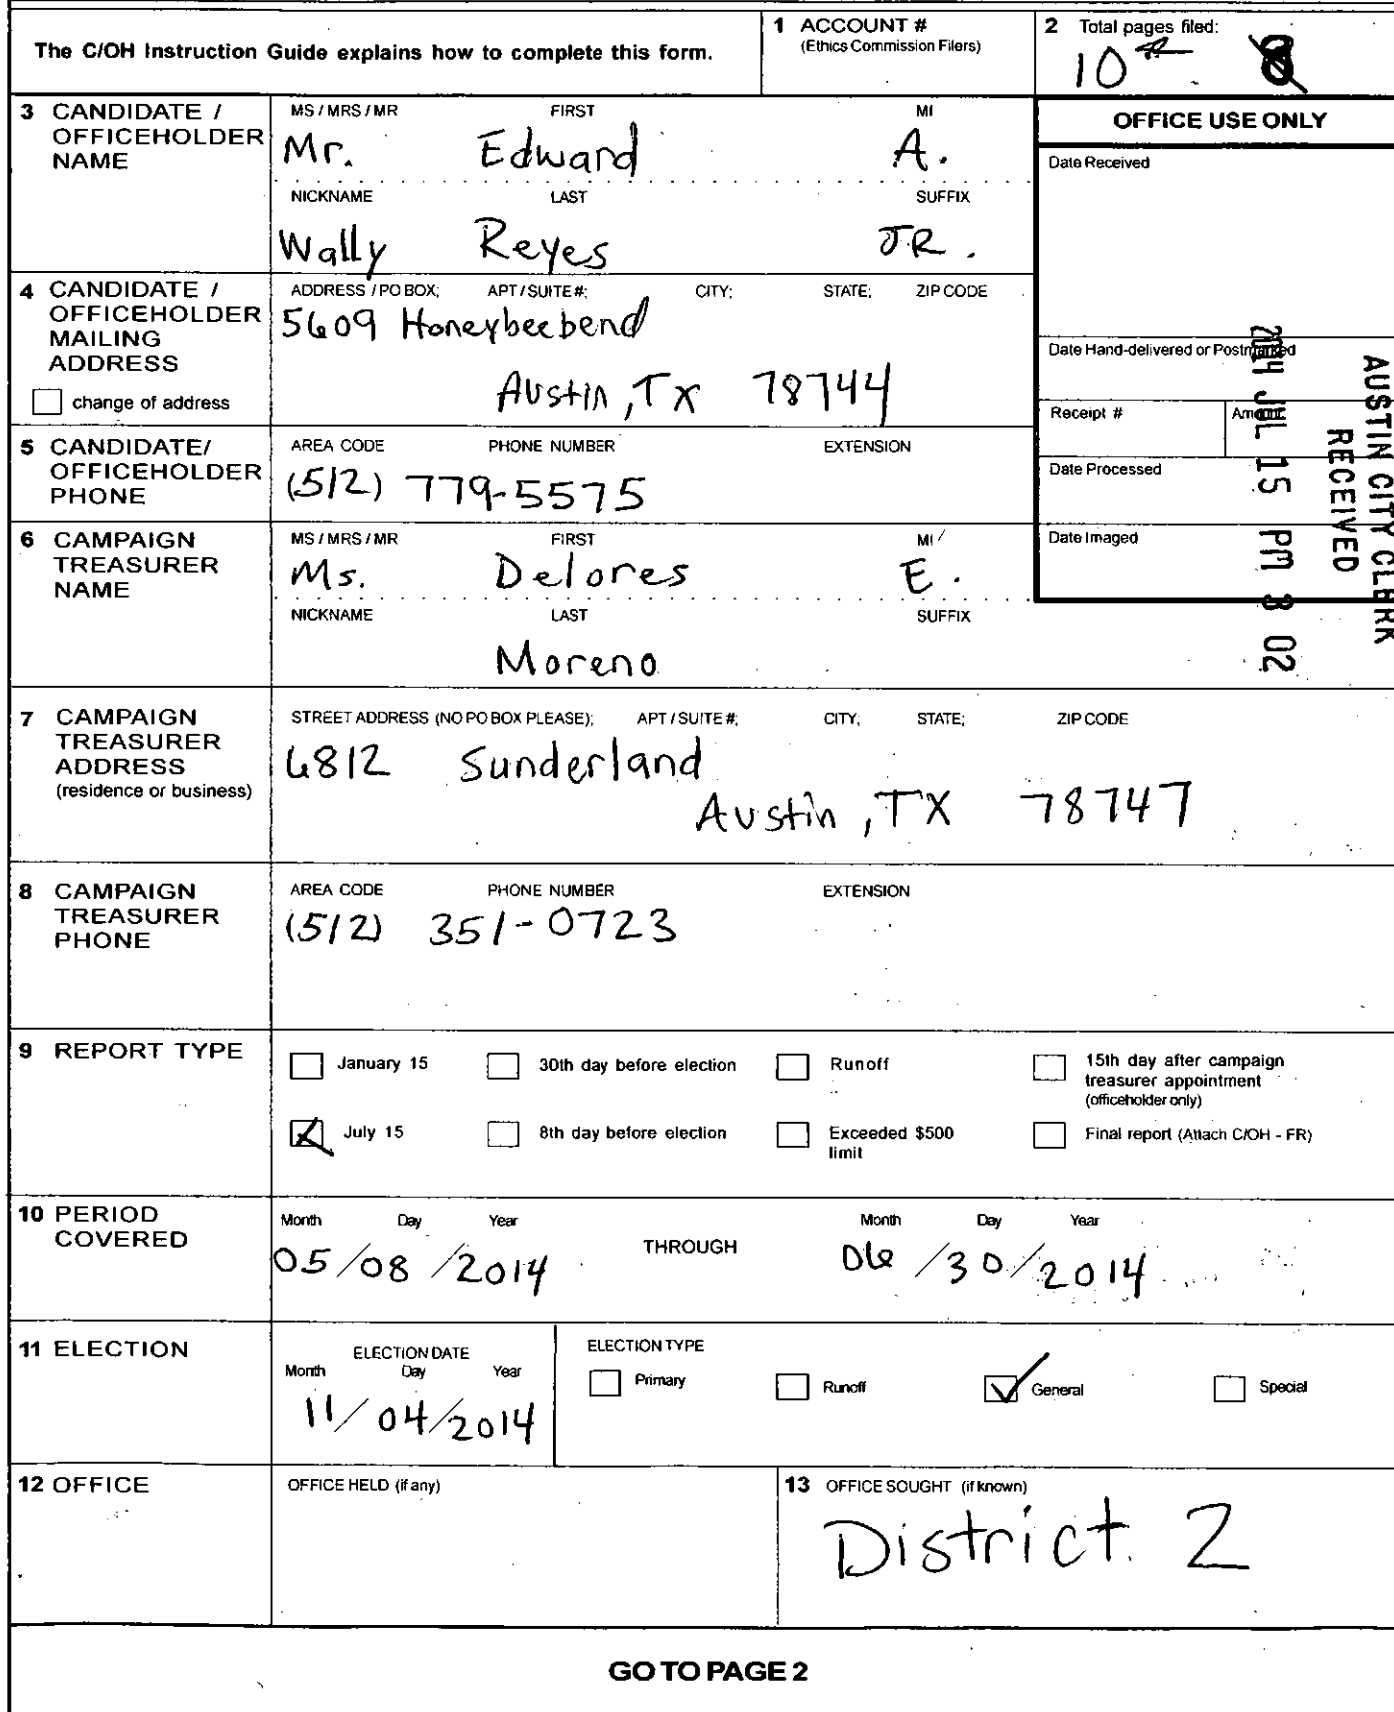 The C/OH Instruction Guide explains how to complete this form.
1 ACCOUNT #
(Ethics Commission Filers)
2 Total pages filed:
10
3 CANDIDATE / OFFICEHOLDER NAME
MS / MRS / MR FIRST MI
Mr. Edward A.
NICKNAME LAST SUFFIX
Wally Reyes JR.
OFFICE USE ONLY
Date Received
Date Hand-delivered or Postmarked
Receipt # Amount
Date Processed
Date Imaged
AUSTIN CITY CLERK
RECEIVED
2014 JUL 15 PM 3 02
4 CANDIDATE / OFFICEHOLDER MAILING ADDRESS
change of address
ADDRESS / PO BOX; APT / SUITE #; CITY; STATE; ZIP CODE
5609 Honeybeebend
Austin, Tx 78744
5 CANDIDATE/ OFFICEHOLDER PHONE
AREA CODE PHONE NUMBER EXTENSION
(512) 779-5575
6 CAMPAIGN TREASURER NAME
MS / MRS / MR FIRST MI
Ms. Delores E.
NICKNAME LAST SUFFIX
Moreno
7 CAMPAIGN TREASURER ADDRESS
(residence or business)
STREET ADDRESS (NO PO BOX PLEASE); APT / SUITE #; CITY; STATE; ZIP CODE
6812 Sunderland
Austin, TX 78747
8 CAMPAIGN TREASURER PHONE
AREA CODE PHONE NUMBER EXTENSION
(512) 351-0723
9 REPORT TYPE
January 15 30th day before election Runoff 15th day after campaign treasurer appointment (officeholder only)
July 15 8th day before election Exceeded $500 limit Final report (Attach C/OH - FR)
10 PERIOD COVERED
Month Day Year Month Day Year
05/08/2014 THROUGH 06/30/2014
11 ELECTION
ELECTION DATE
Month Day Year
11/04/2014
ELECTION TYPE
Primary Runoff General Special
12 OFFICE
OFFICE HELD (if any)
13 OFFICE SOUGHT (if known)
District 2
GO TO PAGE 2